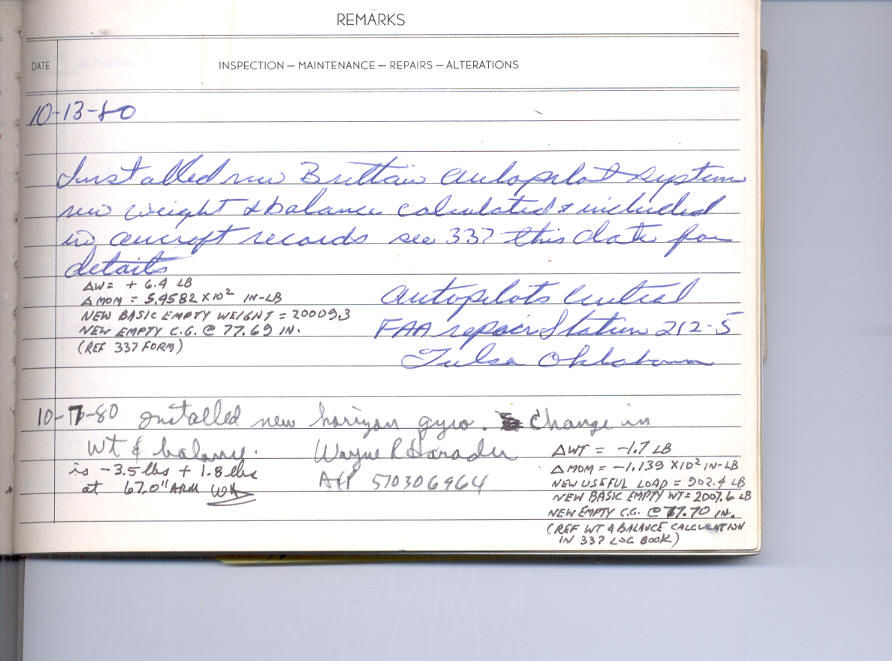 REMARKS
DATE
INSPECTION — MAINTENANCE — REPAIRS — ALTERATIONS
10-13-80
Installed new Brittain Autopilot system
new weight & balance calculated & included
in aircraft records see 337 this date for
details
ΔW= + 6.4 LB
ΔMOM = 5.9582 X10² IN-LB
NEW BASIC EMPTY WEIGHT = 2009.3
NEW EMPTY C.G. @ 77.69 IN.
(REF 337 FORM)
Autopilots Central
FAA repair Station 212-5
Tulsa Oklahoma
10-17-80 Installed new horizon gyro. Change in
Wt & balance. Wayne R
is -3.5 lbs + 1.8 lbs A&P 510306964
at 67.0" ARM
ΔWT = -1.7 LB
ΔMOM = -1.139 X10² IN-LB
NEW USEFUL LOAD = 902.4 LB
NEW BASIC EMPTY WT= 2007.6 LB
NEW EMPTY C.G. @ 77.70 IN.
(REF WT & BALANCE CALCULATION
IN 337 LOG BOOK)